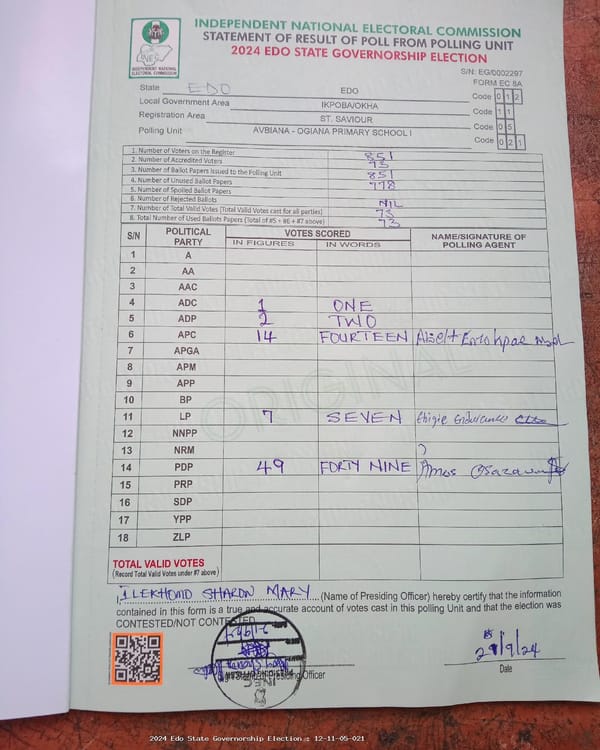 INDEPENDENT NATIONAL ELECTORAL COMMISSION
STATEMENT OF RESULT OF POLL FROM POLLING UNIT
2024 EDO STATE GOVERNORSHIP ELECTION
INEC
INDEPENDENT NATIONAL ELECTORAL COMMISSION
S/N: EG/0002297
FORM EC 8A
State EDO EDO Code 0 1 2
Local Government Area IKPOBA/OKHA Code 1 1
Registration Area ST. SAVIOUR Code 0 5
Polling Unit AVBIANA - OGIANA PRIMARY SCHOOL I Code 0 2 1
1. Number of Voters on the Register 851
2. Number of Accredited Voters 73
3. Number of Ballot Papers Issued to the Polling Unit 851
4. Number of Unused Ballot Papers 778
5. Number of Spoiled Ballot Papers
6. Number of Rejected Ballots NIL
7. Number of Total Valid Votes (Total Valid Votes cast for all parties) 73
8. Total Number of Used Ballots Papers (Total of #5 + #6 + #7 above) 73
S/N POLITICAL PARTY VOTES SCORED NAME/SIGNATURE OF POLLING AGENT
IN FIGURES IN WORDS
1 A
2 AA
3 AAC
4 ADC 1 ONE
5 ADP 2 TWO
6 APC 14 FOURTEEN
7 APGA
8 APM
9 APP
10 BP
11 LP 7 SEVEN
12 NNPP
13 NRM
14 PDP 49 FORTY NINE Amos
15 PRP
16 SDP
17 YPP
18 ZLP
ORIGINAL
TOTAL VALID VOTES
(Record Total Valid Votes under #7 above)
I, ILEKHOMO SHARON MARY (Name of Presiding Officer) hereby certify that the information
contained in this form is a true and accurate account of votes cast in this polling Unit and that the election was
CONTESTED/NOT CONTESTED
Presiding Officer
INEC
21/9/24
Date
2024 Edo State Governorship Election : 12-11-05-021